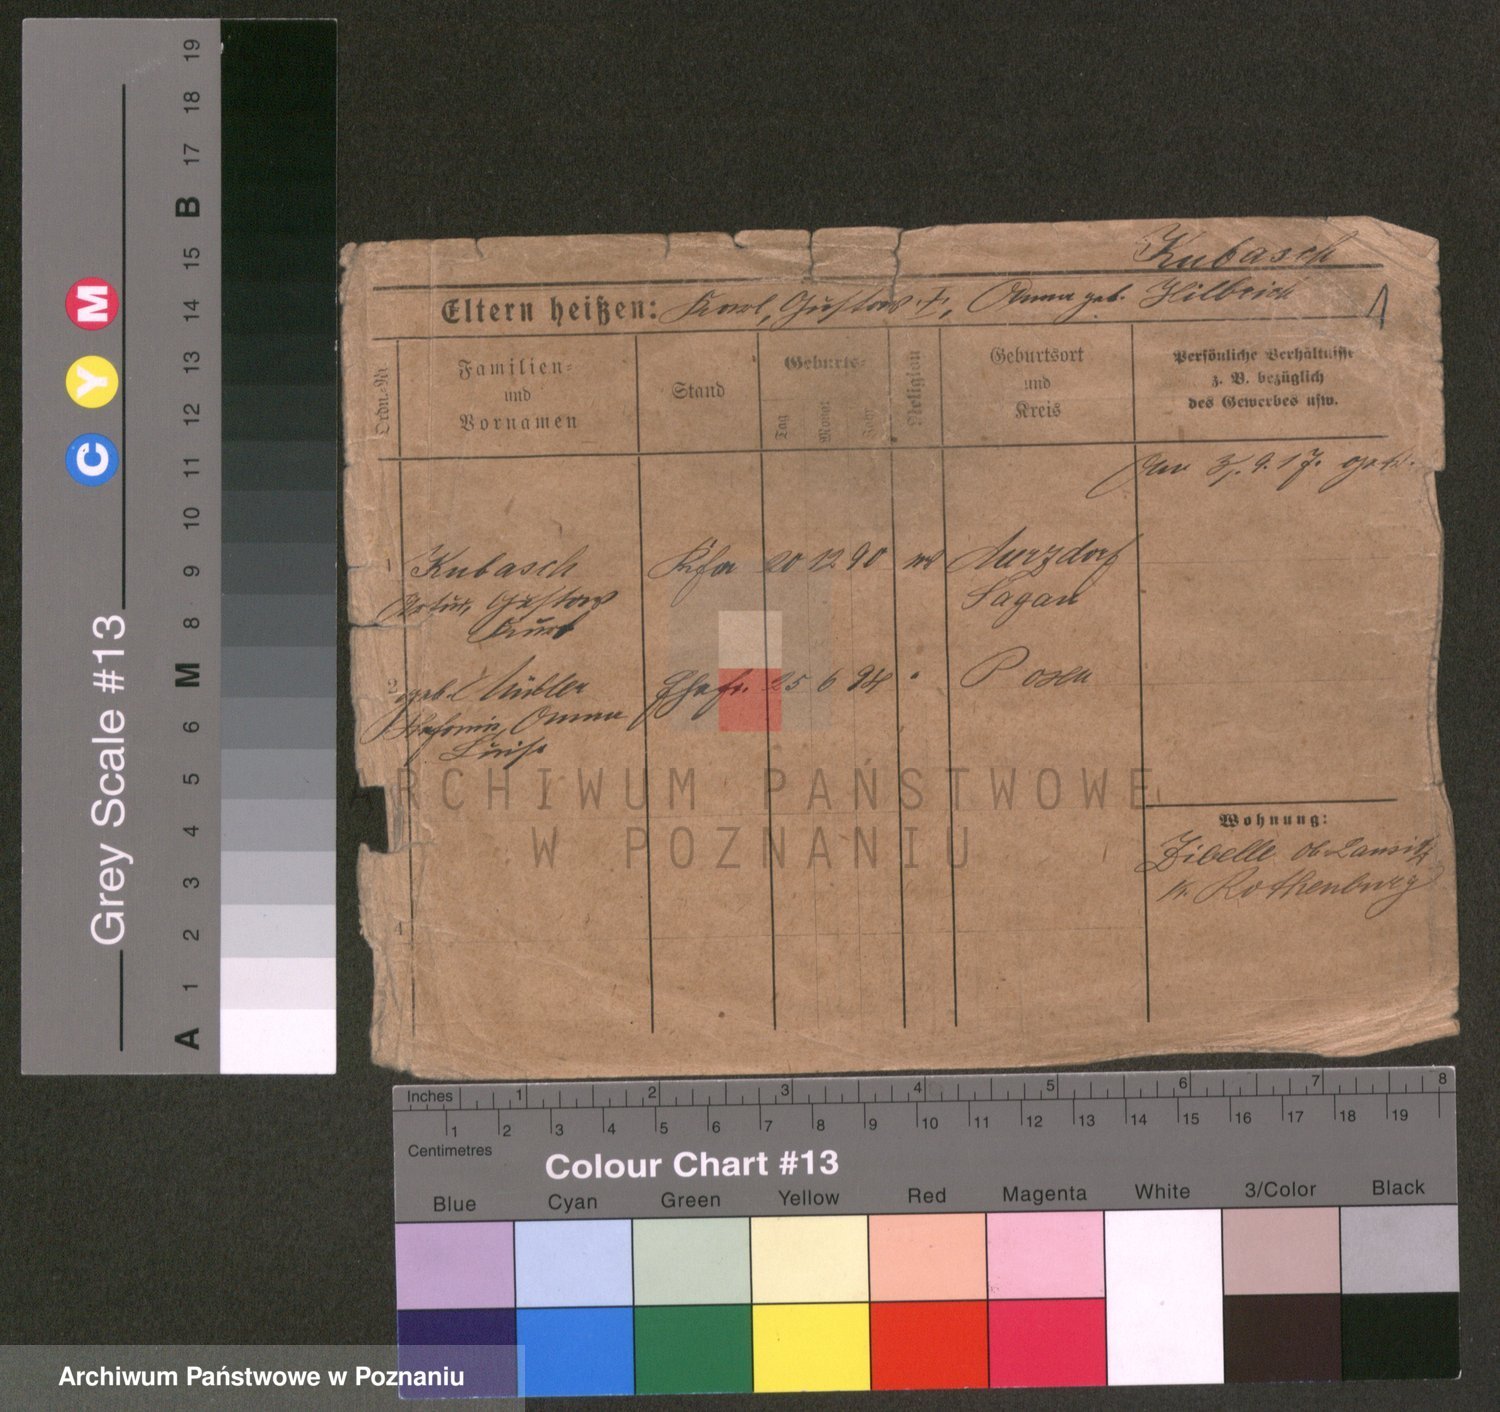 Kubasch
Eltern heißen: Karl, Gustav †, Anna geb. Hilbrich
Ordn.-Nr.
Familien- und Vornamen
Stand
Geburts-
Tag
Monat
Jahr
Religion
Geburtsort und Kreis
Persönliche Verhältnisse z. B. bezüglich des Gewerbes usw.
9. 17.
1 Kubasch Kfm 20 12 90 Kurzdorf
Artur, Gustav Sagan
Kurt
2 geb. Müller Ehefr. 25 6 94 " Posen
Anna
Luise
4
Wohnung:
Zibelle ob. Lausitz
Kr. Rothenburg
ARCHIWUM PAŃSTWOWE
W POZNANIU
Grey Scale #13
C Y M
A 1 2 3 4 5 6 M 8 9 10 11 12 13 14 15 B 17 18 19
Inches 1 2 3 4 5 6 7 8
1 2 3 4 5 6 7 8 9 10 11 12 13 14 15 16 17 18 19
Centimetres
Colour Chart #13
Blue Cyan Green Yellow Red Magenta White 3/Color Black
Archiwum Państwowe w Poznaniu